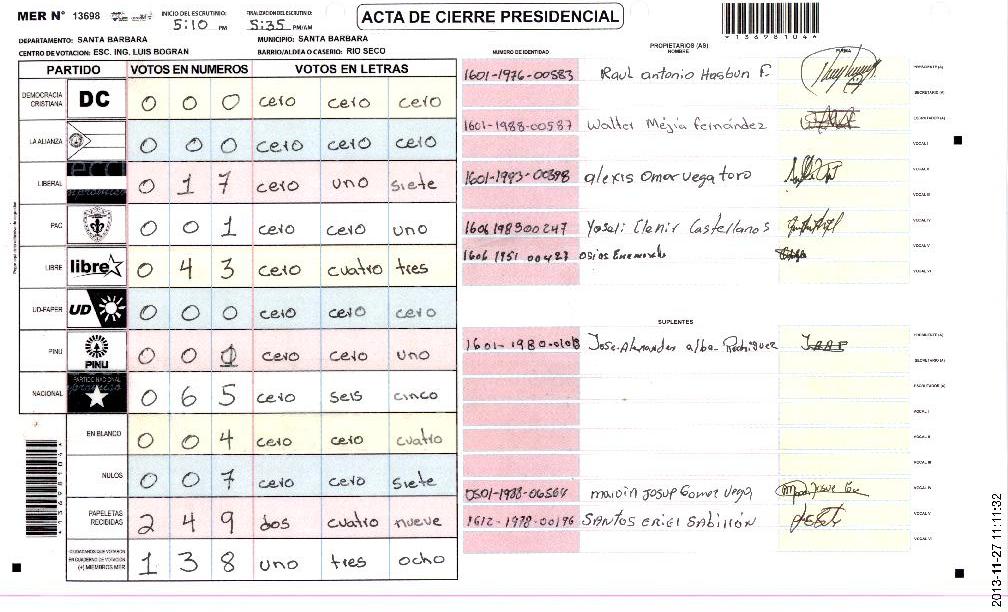 MER N° 13698
INICIO DEL ESCRUTINIO: 5:10 PM
FINALIZACION DEL ESCRUTINIO: 5:35 PM/AM
ACTA DE CIERRE PRESIDENCIAL
*136981044*
DEPARTAMENTO: SANTA BARBARA
MUNICIPIO: SANTA BARBARA
CENTRO DE VOTACION: ESC. ING. LUIS BOGRAN
BARRIO/ALDEA O CASERIO: RIO SECO
PARTIDO VOTOS EN NUMEROS VOTOS EN LETRAS
DEMOCRACIA CRISTIANA DC 0 0 0 cero cero cero
LA ALIANZA 0 0 0 cero cero cero
LIBERAL 0 1 7 cero uno siete
PAC 0 0 1 cero cero uno
LIBRE libre 0 4 3 cero cuatro tres
UD-FAPER UD 0 0 0 cero cero cero
PINU PINU 0 0 1 cero cero uno
NACIONAL PARTIDO NACIONAL 0 6 5 cero seis cinco
EN BLANCO 0 0 4 cero cero cuatro
NULOS 0 0 7 cero cero siete
PAPELETAS RECIBIDAS 2 4 9 dos cuatro nueve
CIUDADANOS QUE VOTARON EN CUADERNO DE VOTACIÓN (+) MIEMBROS MER 1 3 8 uno tres ocho
NUMERO DE IDENTIDAD
PROPIETARIOS (AS)
NOMBRE
FIRMA
1601-1976-00583 Raul antonio Hasbun F. PRESIDENTE (A)
SECRETARIO (A)
1601-1988-00587 Walter Mejia fernández ESCRUTADOR (A)
VOCAL I
1601-1993-00398 alexis Omar vega toro VOCAL II
VOCAL III
1606198500247 Yoseli Elenir Castellanos VOCAL IV
1606 1951 00427 VOCAL V
VOCAL VI
SUPLENTES
1601-1980-0108 Jose Alexander alba Rodriguez PRESIDENTE (A)
SECRETARIO (A)
ESCRUTADOR (A)
VOCAL I
VOCAL II
VOCAL III
0501-1988-06564 marvin Josup Gomez vega VOCAL IV
1612-1978-00196 SANTOS ERIEL SABILLÓN VOCAL V
VOCAL VI
2013-11-27 11:11:32